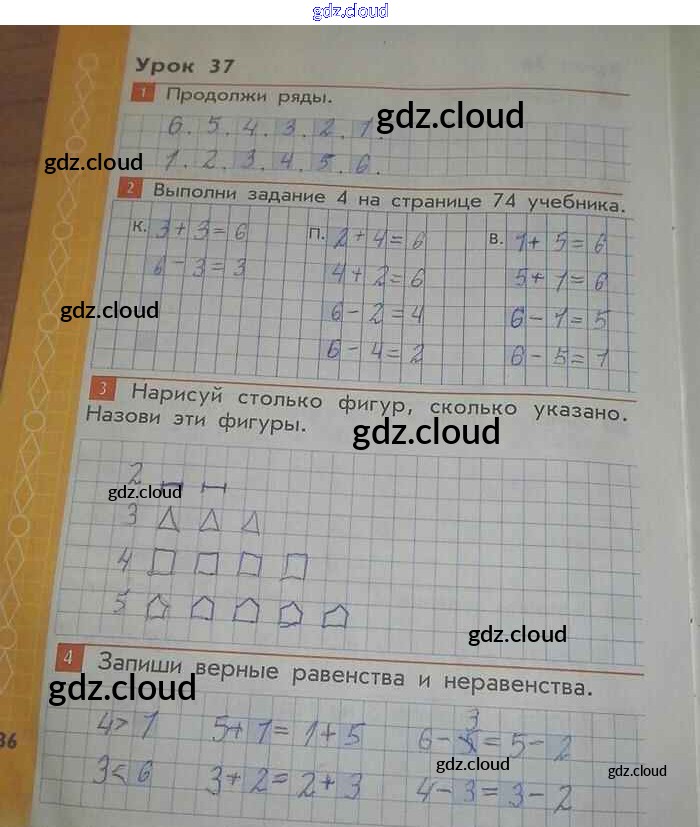 gdz.cloud
Урок 37
1 Продолжи ряды.
gdz.cloud
6. 5. 4. 3. 2. 1.
gdz.cloud
1. 2. 3. 4. 5. 6.
2 Выполни задание 4 на странице 74 учебника.
К. 3+3=6 П. 2+4=6 В. 1+5=6
6-3=3 4+2=6 5+1=6
gdz.cloud
6-2=4 6-1=5
6-4=2 6-5=1
3 Нарисуй столько фигур, сколько указано.
Назови эти фигуры.
gdz.cloud
2
gdz.cloud
3
4
5
gdz.cloud
4 Запиши верные равенства и неравенства.
gdz.cloud
4>1 5+1=1+5 6-3=5-2
gdz.cloud
gdz.cloud
3<6 3+2=2+3 4-3=3-2
36